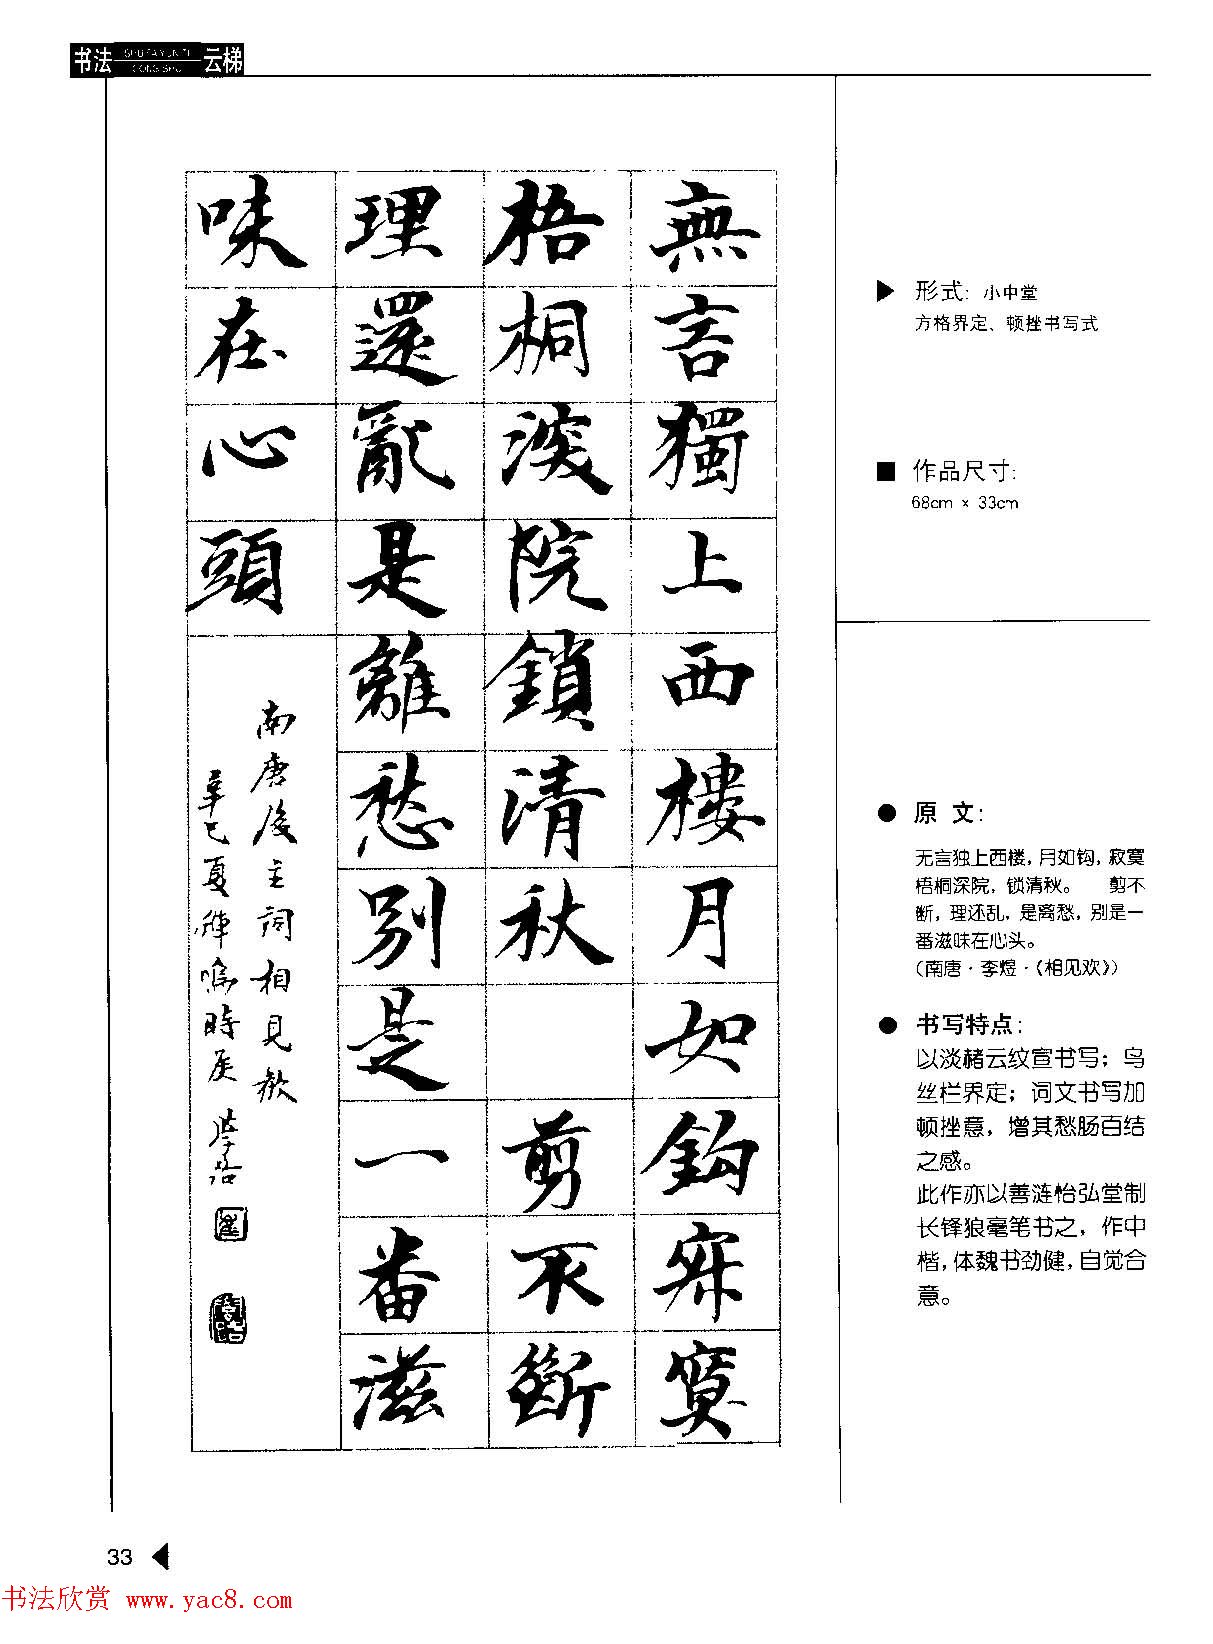 书法 SHU FA YUN TI CONG SHU 云梯
無言獨上西樓月如鈎寂寞
梧桐深院鎖清秋 剪不斷
理還亂是離愁別是一番滋
味在心頭
南唐後主詞相見歡
辛巳夏蟬鳴時矣
▶ 形式: 小中堂
方格界定、顿挫书写式
■ 作品尺寸:
68cm × 33cm
● 原 文:
无言独上西楼，月如钩，寂寞
梧桐深院，锁清秋。 剪不
断，理还乱，是离愁，别是一
番滋味在心头。
(南唐·李煜·《相见欢》)
● 书写特点:
以淡赭云纹宣书写；乌
丝栏界定；词文书写加
顿挫意，增其愁肠百结
之感。
此作亦以善涟怡弘堂制
长锋狼毫笔书之，作中
楷，体魏书劲健，自觉合
意。
33 ◀
书法欣赏 www.yac8.com